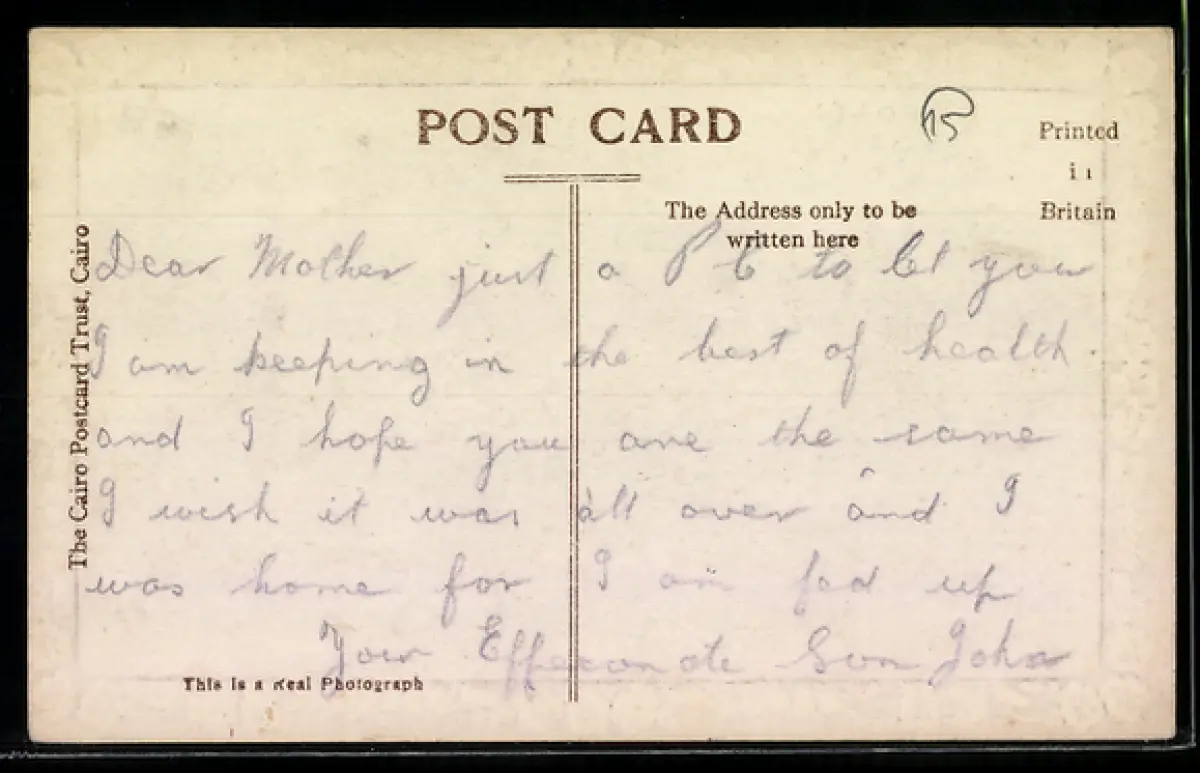 POST CARD
15
Printed
in
Britain
The Address only to be
written here
The Cairo Postcard Trust, Cairo
Dear Mother just a P C to let you
I am keeping in the best of health.
and I hope you are the same
I wish it was all over and I
was home for I am fed up
Your Effeconate Son John
This is a Real Photograph